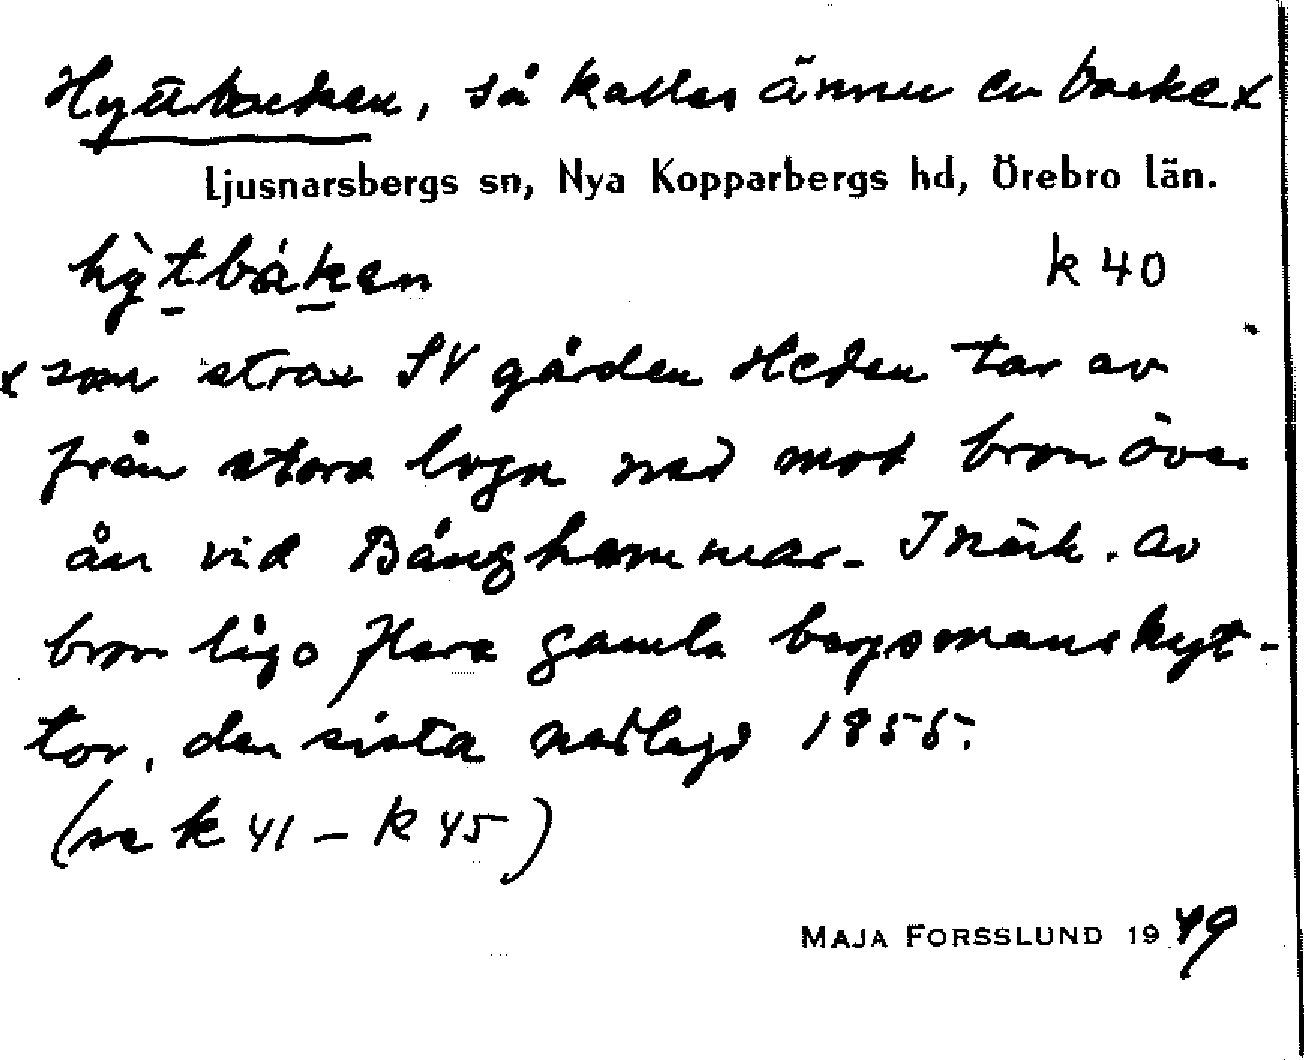 Hyttbacken, så kallas ännu en backe x
Ljusnarsbergs sn, Nya Kopparbergs hd, Örebro län.
hỳtbáken k 40
x som strax SV gården Heden tar av
från stora lvgn ned mot bron över
ån vid Bånghammar. I närh. av
bron lågo flera gamla bergsmanshyt-
tor, den sista nedlagd 1855.
(se k 41 – k 45)
MAJA FORSSLUND 1949